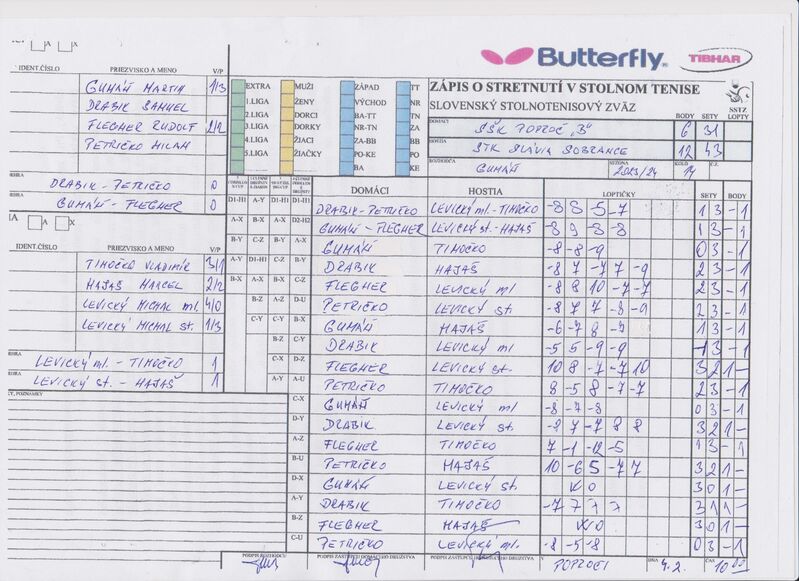 A X
Butterfly. TIBHAR
IDENT.ČÍSLO PRIEZVISKO A MENO V/P
GUMÁŇ MARTIN 1/3
DRABIK SAMUEL
FLEGNER RUDOLF 2/2
PETRIČKO MILAN
DRABIK - PETRIČKO 0
GUMÁŇ - FLEGNER 0
A X
IDENT.ČÍSLO PRIEZVISKO A MENO V/P
TIMOČKO VLADIMÍR 3/1
HAJAŠ MARCEL 2/2
LEVICKÝ MICHAL ml. 4/0
LEVICKÝ MICHAL st. 1/3
LEVICKÝ ml. - TIMOČKO 1
LEVICKÝ st. - HAJAŠ 1
POZNÁMKY
EXTRA MUŽI ZÁPAD TT
1.LIGA ŽENY VÝCHOD NR
2.LIGA DORCI BA-TT TN
3.LIGA DORKY NR-TN ZA
4.LIGA ŽIACI ZA-BB BB
5.LIGA ŽIAČKY PO-KE PO
BA KE
ZÁPIS O STRETNUTÍ V STOLNOM TENISE
SLOVENSKÝ STOLNOTENISOVÝ ZVÄZ
SSTZ
BODY SETY LOPTY
DOMÁCI ŠŠK POPROČ „B" 6 31
HOSTIA STK SLÁVIA SOBRANCE 12 43
ROZHODCA GUMÁŇ SEZÓNA 2023/24 KOLO 14
DOMÁCI HOSTIA LOPTIČKY SETY BODY
D1-H1 A-Y D1-H1 D1-H1 DRABIK-PETRIČKO LEVICKÝ ml.-TIMOČKO -8 8 -5 -7 1 3 - 1
A-X B-X A-X D2-H2 GUMÁŇ - FLEGNER LEVICKÝ st.-HAJAŠ -8 9 -8 -8 1 3 - 1
B-Y C-Z B-Y A-X GUMÁŇ TIMOČKO -8 -8 -9 0 3 - 1
A-Y D1-H1 C-Z B-Y DRABIK HAJAŠ -8 7 -7 7 -9 2 3 - 1
B-X A-X B-X C-Z FLEGNER LEVICKÝ ml -8 8 10 -7 -7 2 3 - 1
B-Z A-Z D-U PETRIČKO LEVICKÝ st. -8 7 7 -8 -9 2 3 - 1
C-Y C-Y B-X GUMÁŇ HAJAŠ -6 -7 8 -7 1 3 - 1
B-Z C-Y DRABIK LEVICKÝ ml -5 5 -9 -9 1 3 - 1
C-X D-Z FLEGNER LEVICKÝ st. 10 8 -7 -7 10 3 2 1 -
A-Y A-U PETRIČKO TIMOČKO 8 -5 8 -7 -7 2 3 - 1
C-X GUMÁŇ LEVICKÝ ml -8 -7 -8 0 3 - 1
D-Y DRABIK LEVICKÝ st. -8 7 -7 8 8 3 2 1 -
A-Z FLEGNER TIMOČKO 7 -1 -12 -5 1 3 - 1
B-U PETRIČKO HAJAŠ 10 -6 5 -7 7 3 2 1 -
D-X GUMÁŇ LEVICKÝ st. 3 0 1 -
A-Y DRABIK TIMOČKO -7 7 7 7 3 1 1 -
B-Z FLEGNER HAJAŠ 3 0 1 -
C-U PETRIČKO LEVICKÝ ml. -8 -5 -8 0 3 - 1
PODPIS ROZHODCU PODPIS ZÁSTUPCU DOMÁCEHO DRUŽSTVA PODPIS ZÁSTUPCU HOSŤUJÚCEHO DRUŽSTVA V POPROČI DŇA 4.2. ČAS 10 00